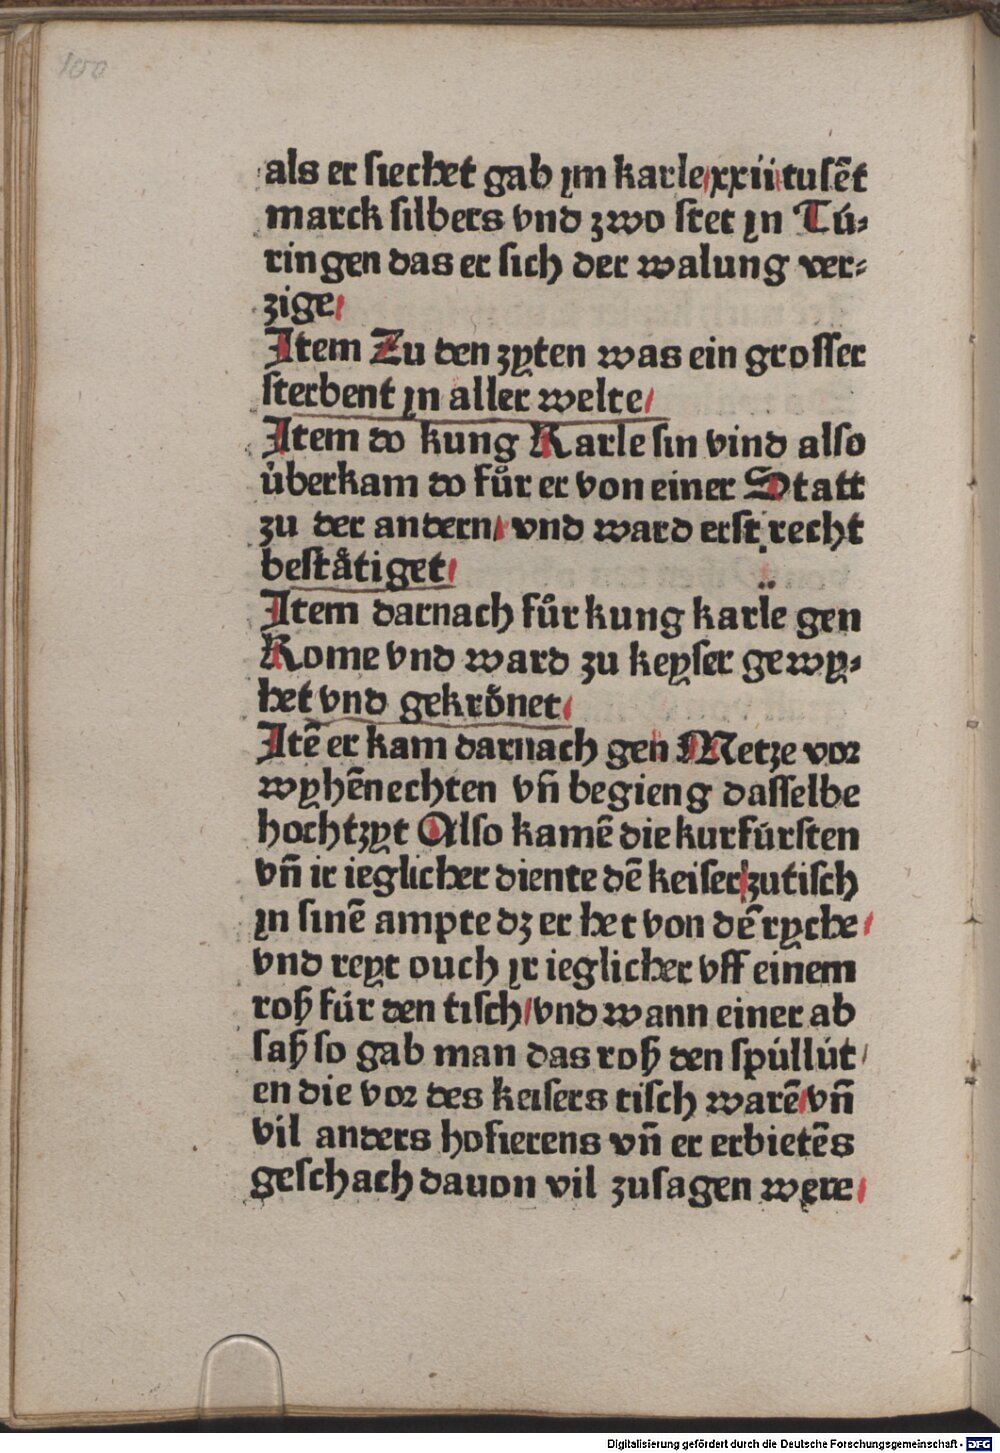 100
als er siechet gab ym karle/xxii/tusēt
marck silbers vnd zwo stet yn Tú⸗
ringen das er sich der walung ver⸗
zige/
Item Zu den zyten was ein grosser
sterbent yn aller welte/
Item do kung Karle sin vind also
úberkam do fůr er von einer Statt
zu der andern/ vnd ward erst recht
beståtiget/
Item darnach fůr kung karle gen
Rome vnd ward zu keyser gewy⸗
het vnd gekrőnet/
Itē er kam darnach gen Metze vor
wyhēnechten vn̄ begieng dasselbe
hochtzyt Also kamē die kurfúrsten
vn̄ ir ieglicher diente dē keiser/zutisch
yn sinē ampte dz er het von dē ryche/
vnd reyt ouch yr ieglicher vff einem
roß fúr den tisch/vnd wann einer ab
saß so gab man das roß den spúllút/
en die vor des keisers tisch warē/vn̄
vil anders hofierens vn̄ er erbietēs
geschach dauon vil zusagen were/
Digitalisierung gefördert durch die Deutsche Forschungsgemeinschaft - DFG